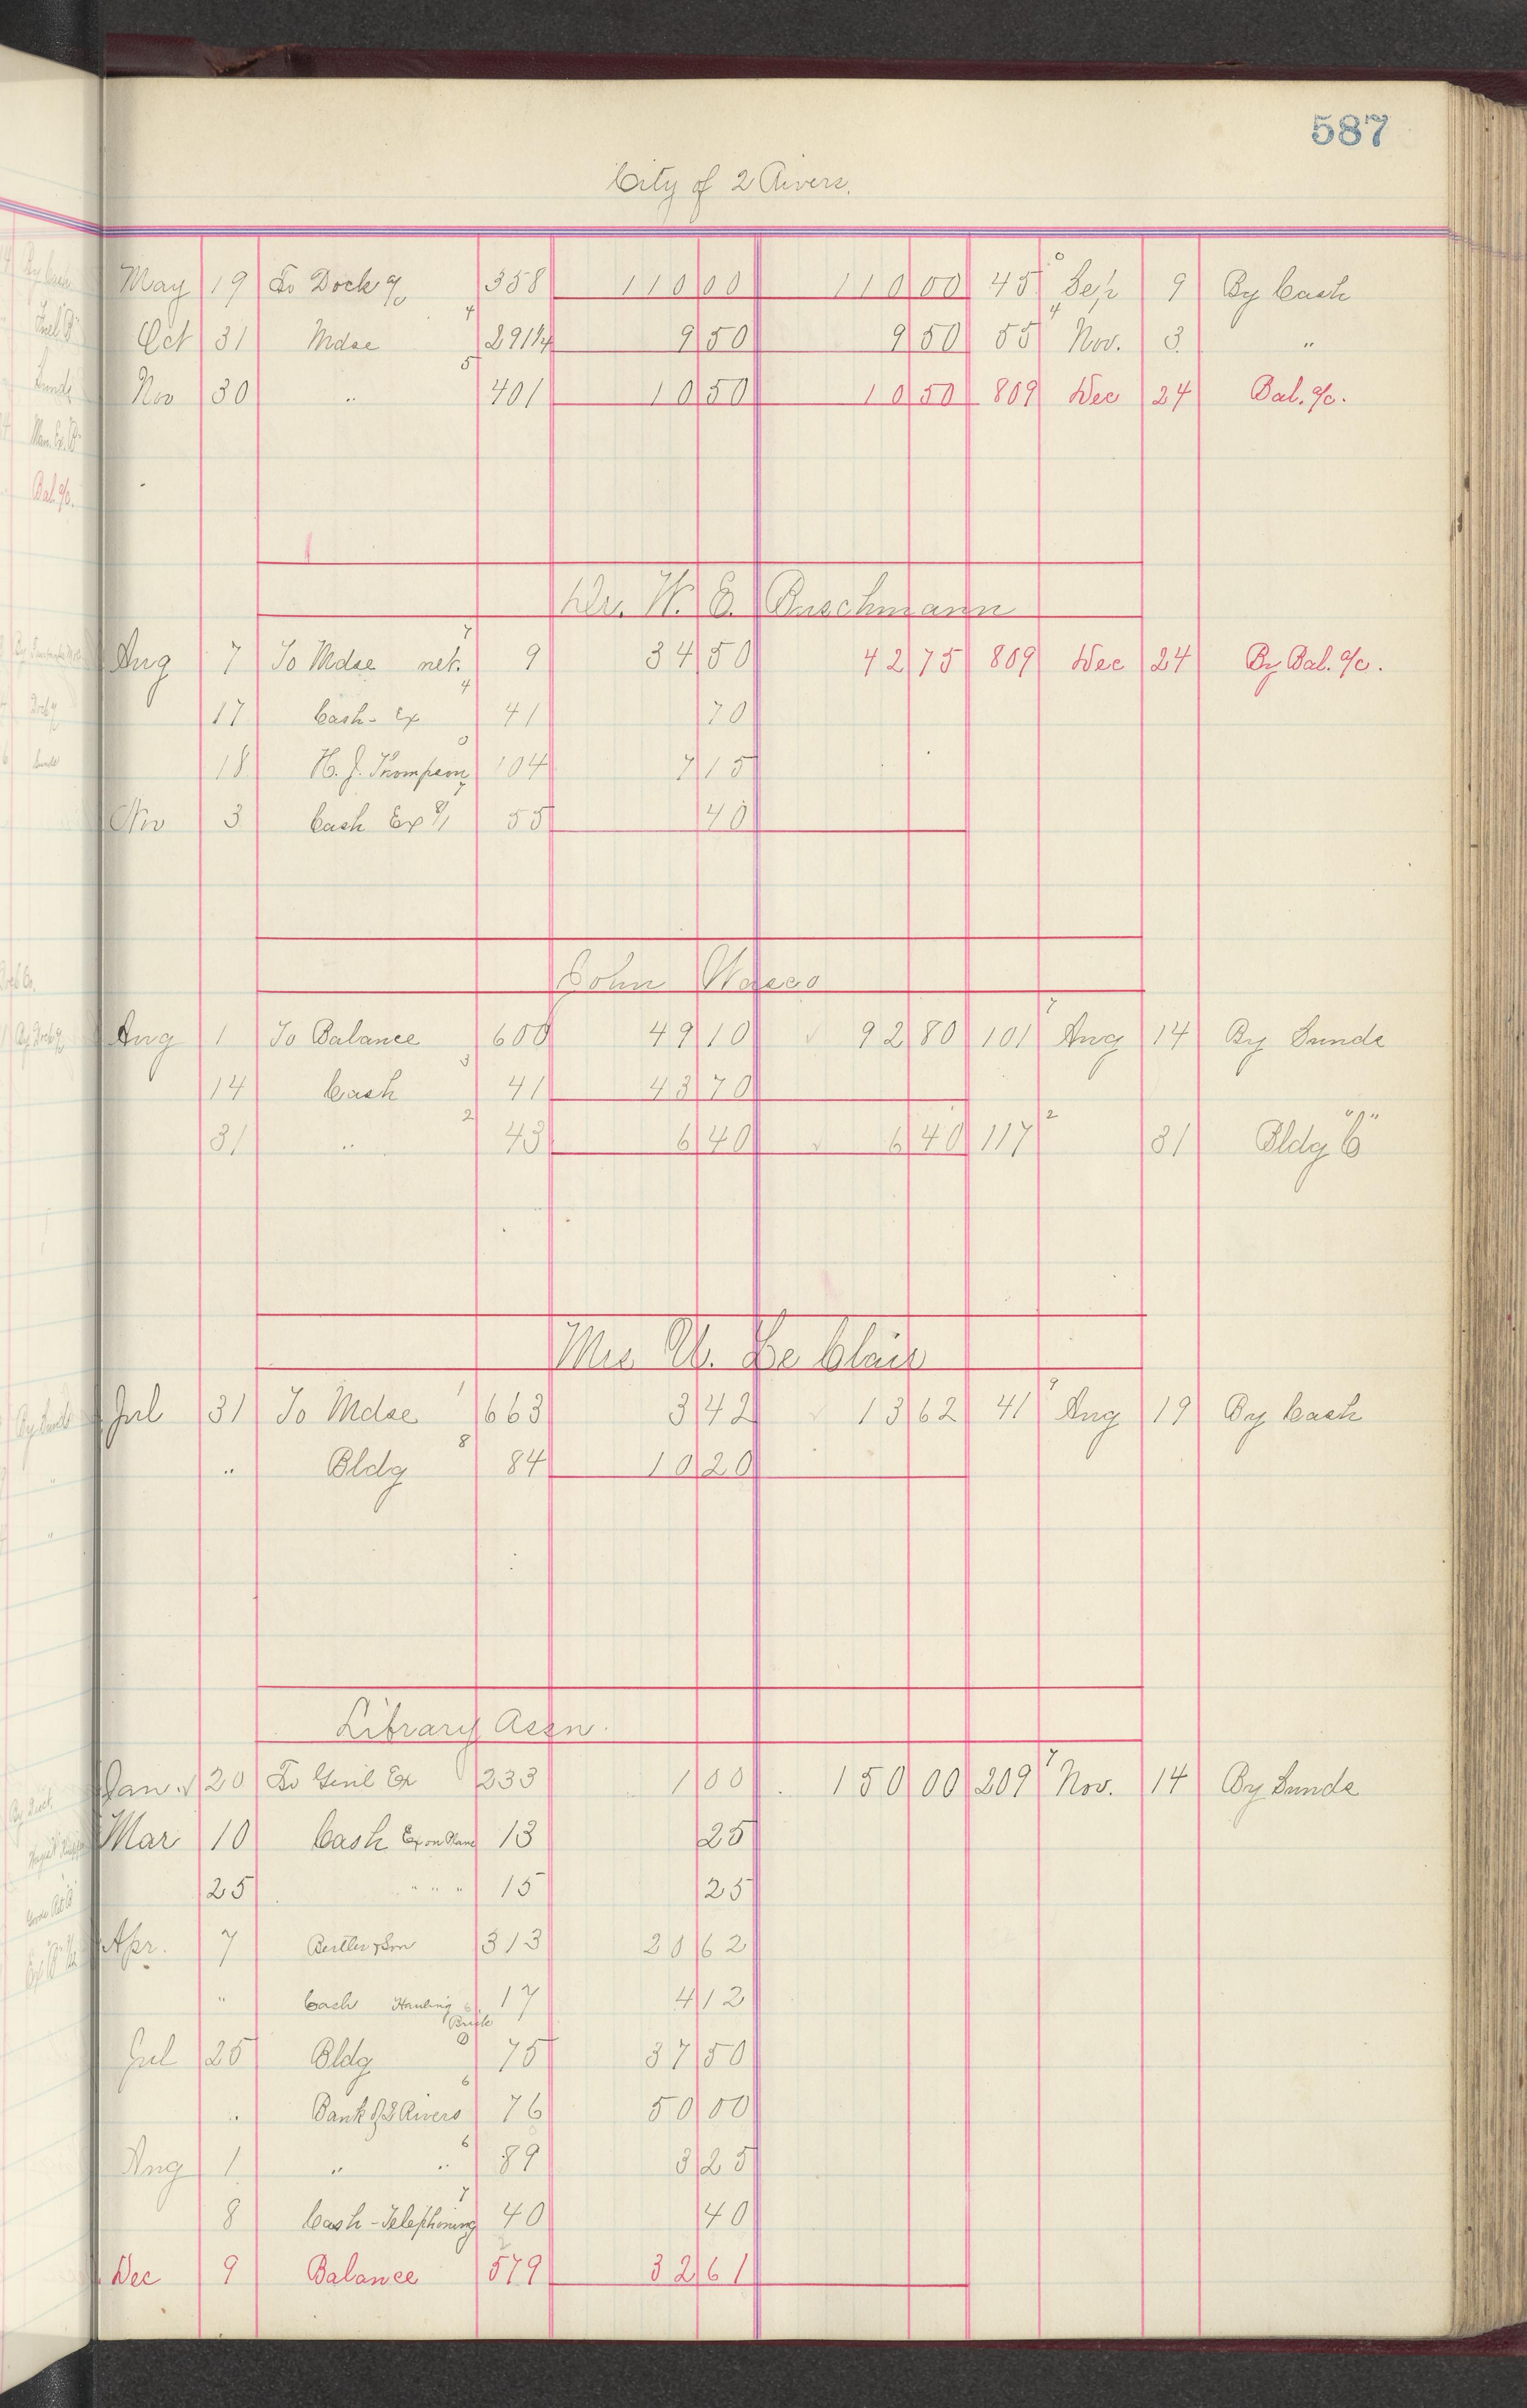 587
City of 2 Rivers.
May 19 To Dock a/c 358 110 00 110 00 45 Sep 9 By Cash
Oct 31 Mdse 291 1/4 9 50 9 50 55 Nov. 3 "
Nov 30 " 401 10 50 10 50 809 Dec 24 Bal. a/c.
Dr. W. E. Buschmann
Aug 7 To Mdse net. 9 34 50 42 75 809 Dec 24 By Bal. a/c.
17 Cash - Ex 41 70
18 H. J. Thompson 104 7 15
Nov 3 Cash Ex 55 40
John
Aug 1 To Balance 600 49 10 92 80 101 Aug 14 By Sunds
14 Cash 41 43 70
31 " 43 6 40 6 40 117 31 Bldg "C"
Mrs Le Clair
Jul 31 To Mdse 663 3 42 13 62 41 Aug 19 By Cash
" Bldg 84 10 20
Library Assn.
Jan. 20 To Genl Ex 233 1 00 150 00 209 Nov. 14 By Sunds
Mar 10 Cash Ex on 13 25
25 " " " 15 25
Apr. 7 & Son 313 20 62
" Cash Hauling Brick 17 4 12
Jul 25 Bldg 75 37 50
" Bank of 2 Rivers 76 50 00
Aug 1 " " 89 3 25
8 Cash - Telephoning 40 40
Dec 9 Balance 579 32 61